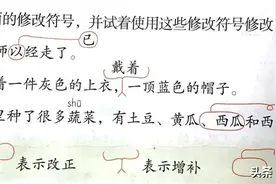 的修改符号，并试着使用这些修改符号修改
已
师以经走了。
戴着
着一件灰色的上衣，一顶蓝色的帽子。
shū
里种了很多蔬菜，有土豆、黄瓜、西瓜和西
表示改正 表示增补
头条